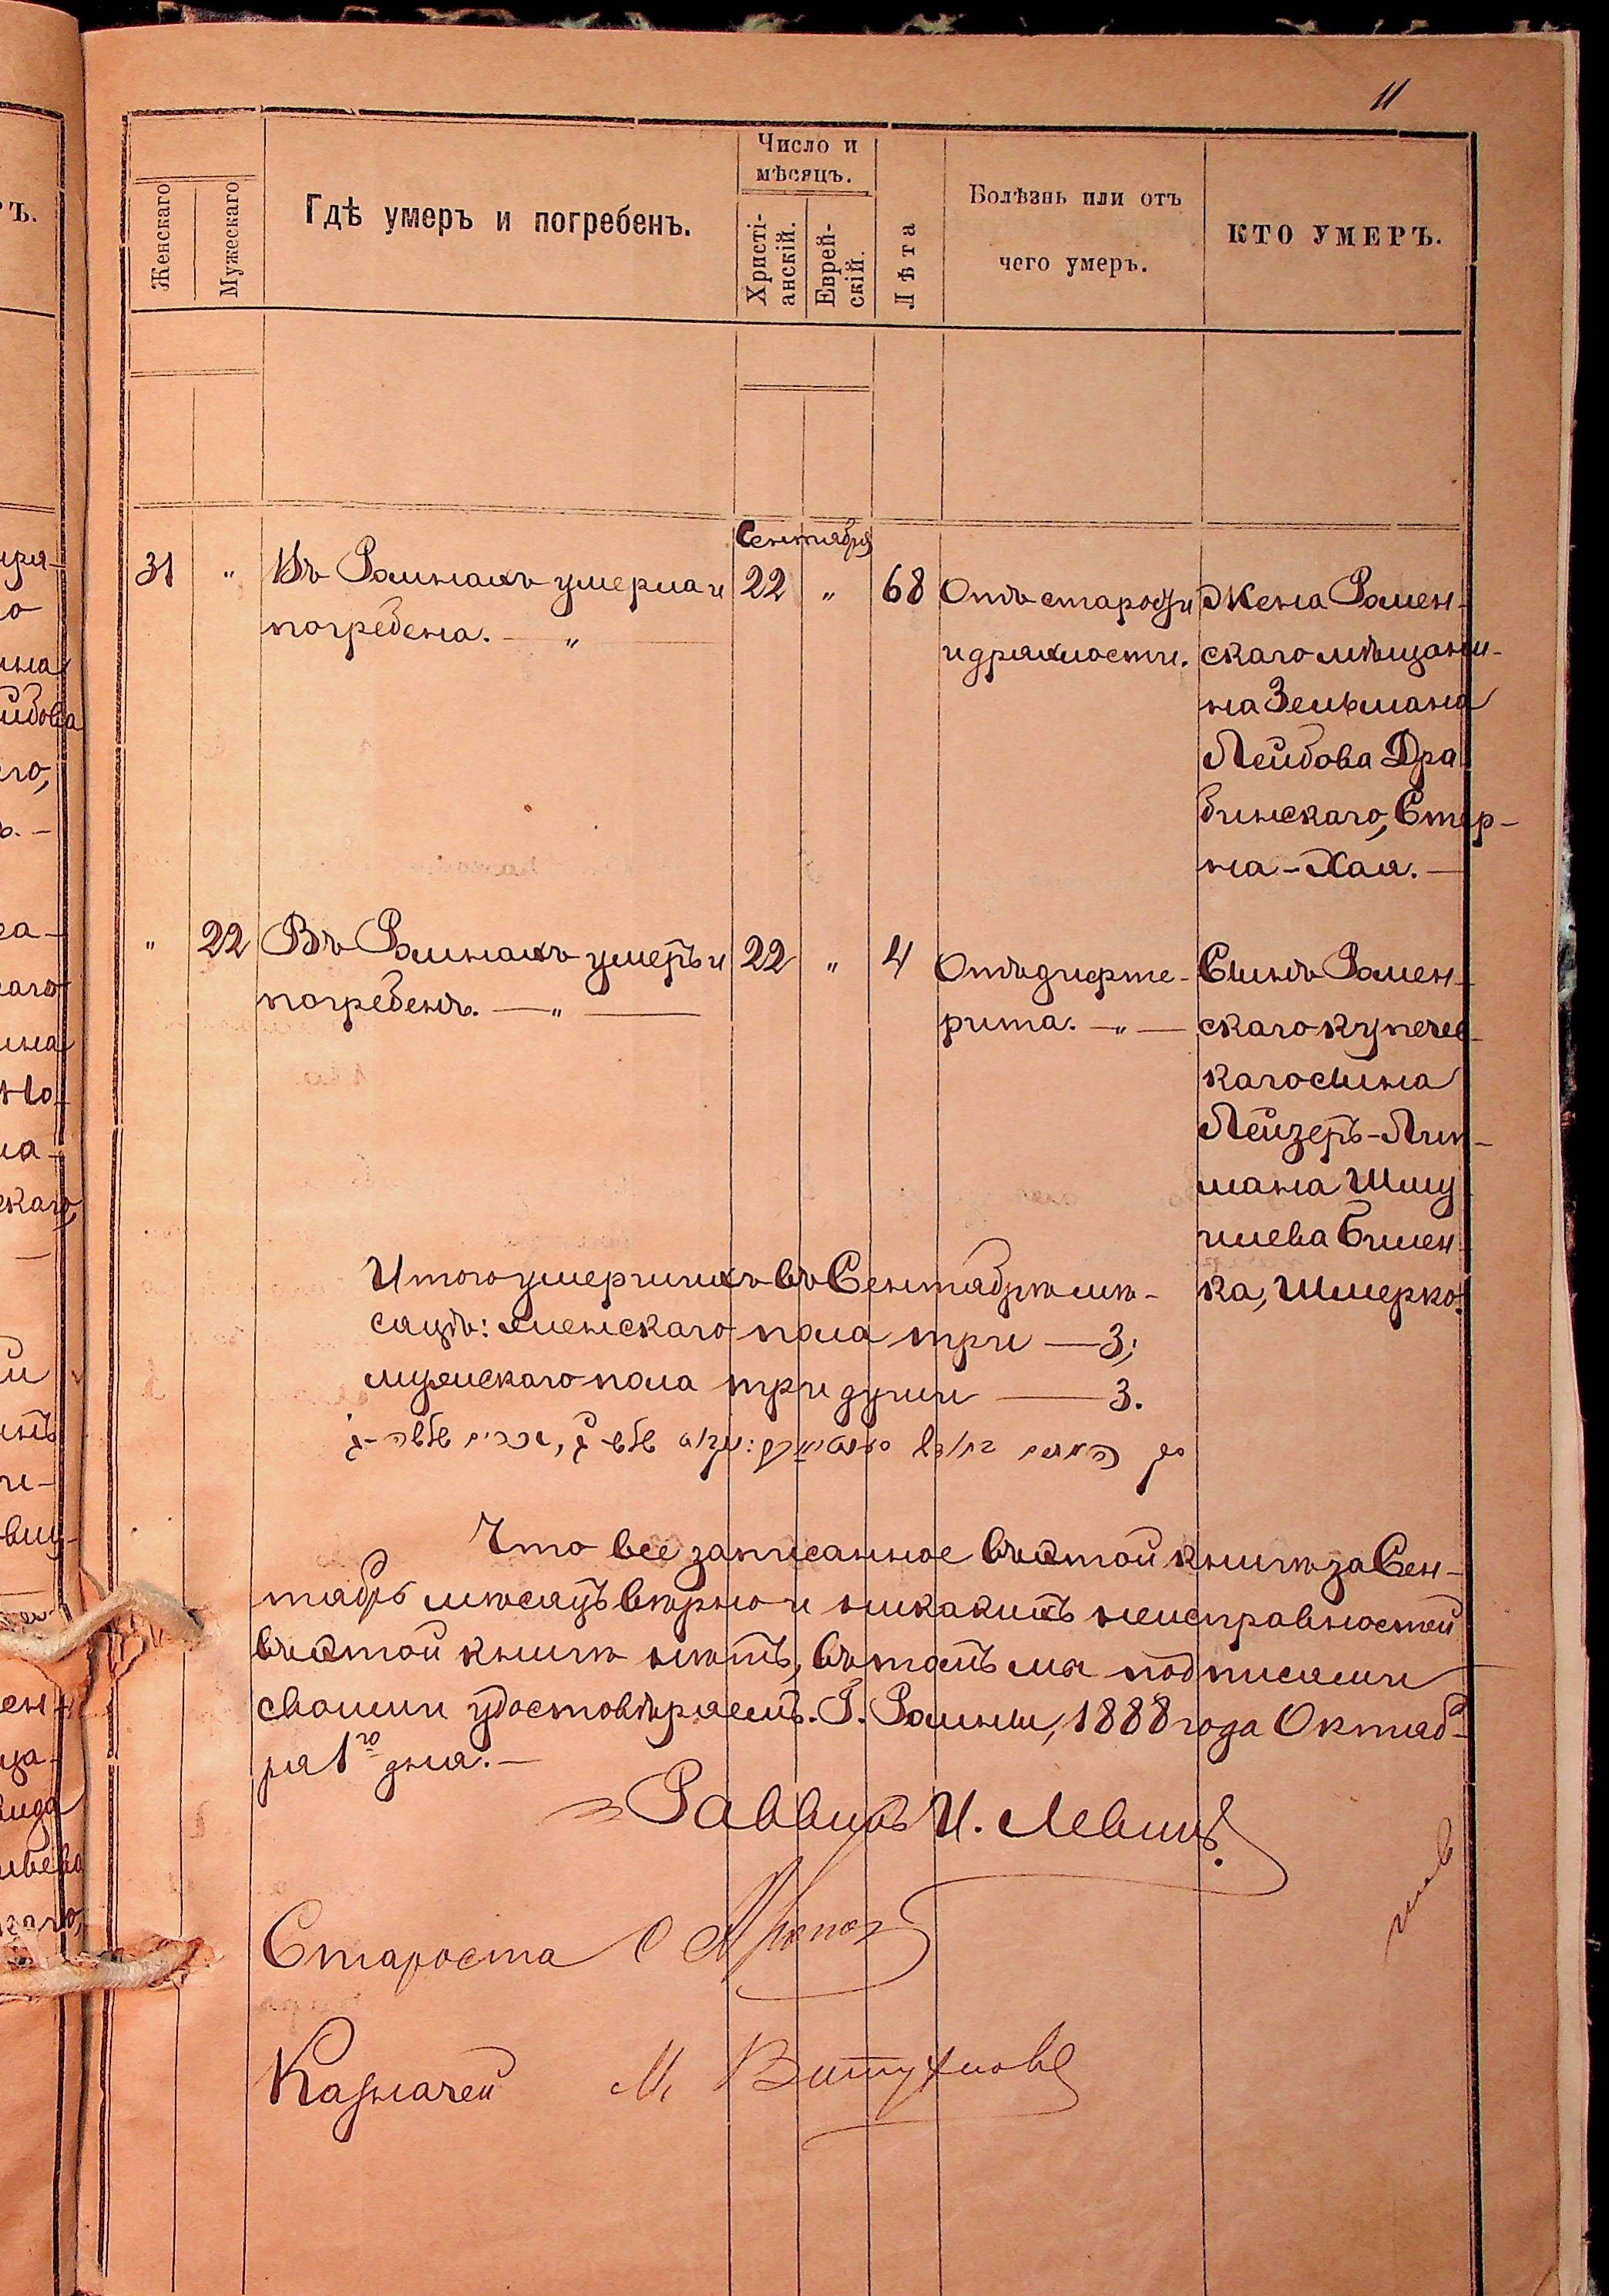 11
Женскаго
Мужескаго
Гдѣ умеръ и погребенъ.
Число и
мѣсяцъ.
Христі-
анскій.
Еврей-
скій.
Лѣта
Болѣзнь или отъ
чего умеръ.
КТО УМЕРЪ.
Сентября
31 " Въ Ромнахъ умерла и 22 " 68 Отъ старости Жена Ромен-
погребена. — " — и дряхлости. скаго мѣщани-
на Зельмана
Лейбова Дра
бинскаго, Стер-
на-Хая. —
" 22 Въ Ромнахъ умеръ и 22 " 4 Отъ дифте- Сынъ Ромен-
погребенъ. — " — рита. — " — скаго купечес-
каго сына
Лейзеръ-Лип-
мана Шму
илева Билен
ка, Шмерко.
Итого умершихъ въ Сентябрѣ мѣ-
сяцѣ: женскаго пола три — 3;
мужескаго пола три души — 3.
Что все записанное въ этой книгѣ за Сен-
тябрь мѣсяцъ вѣрно и никакихъ неисправностей
въ этой книгѣ нѣтъ, въ томъ мы подписями
своими удостовѣряемъ. Г. Ромны, 1888 года Октяб-
ря 1го дня. —
Раввинъ И. Левинъ.
Староста
Казначей М. Витухновъ